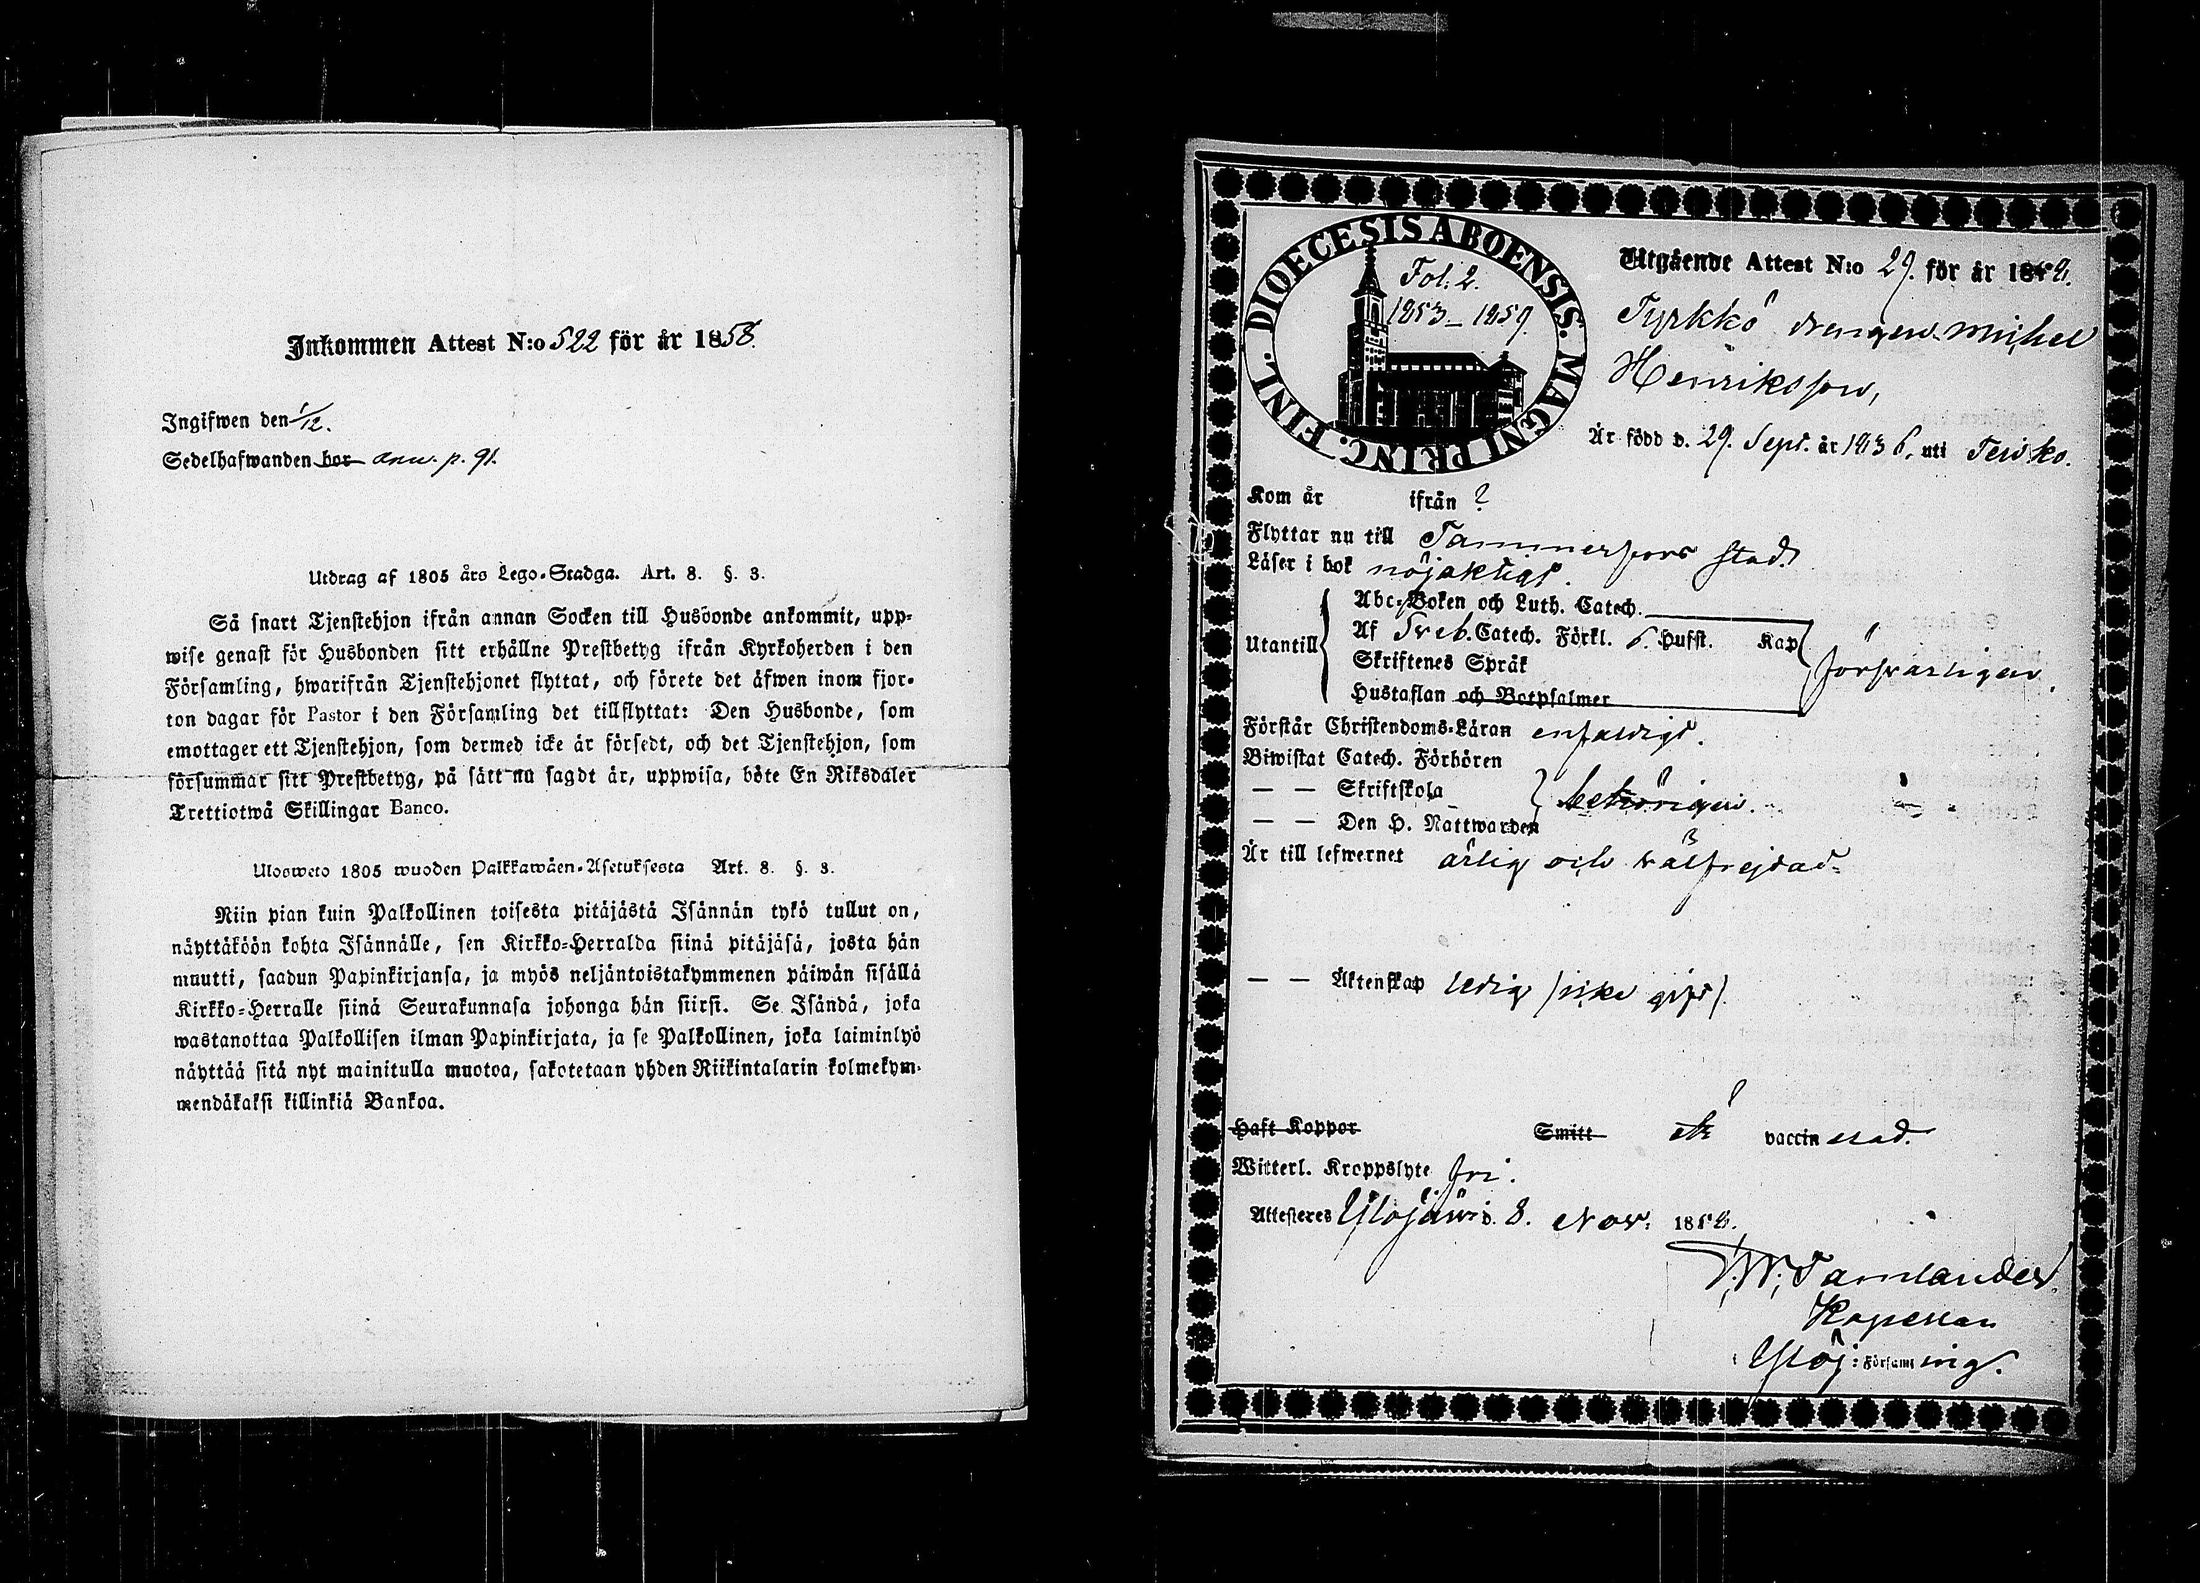 Inkommen Attest N:o 522 för år 1858.
Ingifwen den 1/12.
Sedelhafwanden bor ann. p. 91.
Utdrag af 1805 års Lego-Stadga. Art. 8. §. 3.
Så snart Tjenstehjon ifrån annan Socken till Husbonde ankommit, upp-
wise genast för Husbonden sitt erhållne Prestbetyg ifrån Kyrkoherden i den
Församling, hwarifrån Tjenstehjonet flyttat, och förete det äfwen inom fjor-
ton dagar för Pastor i den Församling det tillflyttat: Den Husbonde, som
emottager ett Tjenstehjon, som dermed icke är försedt, och det Tjenstehjon, som
försummar sitt Prestbetyg, på sätt nu sagdt är, uppwisa, böte En Riksdaler
Trettiotwå Skillingar Banco.
Ulosweto 1805 wuoden Palkkawäen-Asetuksesta Art. 8. §. 3.
Niin pian kuin Palkollinen toisesta pitäjästä Isännän tykö tullut on,
näyttäköön kohta Isännälle, sen Kirkko-Herralda siinä pitäjäsä, josta hän
muutti, saadun Papinkirjansa, ja myös neljäntoistakymmenen päiwän sisällä
Kirkko-Herralle siinä Seurakunnasa johonga hän siirsi. Se Isändä, joka
wastanottaa Palkollisen ilman Papinkirjata, ja se Palkollinen, joka laiminlyö
näyttää sitä nyt mainitulla muotoa, sakotetaan yhden Riikintalarin kolmekym-
mendäkaksi killinkiä Bankoa.
DIOECESIS ABOENSIS. MAGNI PRINC. FINL.
Fol. 2.
1853–1859.
Utgående Attest N:o 29. för år 1858.
Tyrkkö drängen Michel
Henriksson,
Är född d. 29. Sept. år 1836. uti Teisko.
Kom år ifrån ?
Flyttar nu till Tammerfors stad.
Läser i bok nöjaktigt.
Utantill
Abc-Boken och Luth. Catech.
Af Sveb. Catech. Förkl. 6. Hufst. Kap
Skriftenes Språk
Hustaflan och Botpsalmer
försvarligen.
Förstår Christendoms-Läran enfaldigt.
Biwistat Catech. Förhören
— — Skriftskola
— — Den H. Nattwarden
behörigen.
Är till lefwernet ärlig och välfrejdad.
— — Äktenskap ledig /icke gift/.
Haft Koppor Smitt är vaccinerad.
Witterl. Kroppslyte fri.
Attesteres Ylöjärvi d. 8. Nov. 1858.
Tamlander.
Kapellan
Ylöj: Församling.